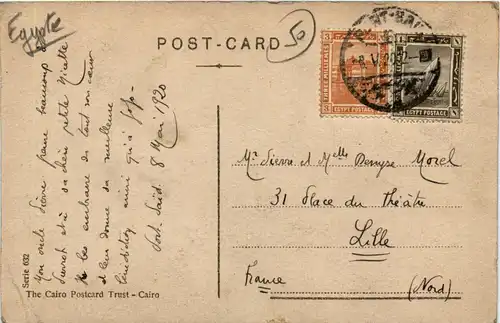 Egypte
50
POST-CARD
Mon oncle Pierre pense beaucoup à
Pierrot et à sa chère petite Nicette
Il les embrasse de tout son cœur
et leur donne sa meilleure
bénédiction ainsi qu'à
Port Saïd 8 Mai 1920
Serie 632
The Cairo Postcard Trust - Cairo
PORT-SAID
EGYPT POSTAGE
EGYPT POSTAGE
Mr Pierre et Melle Denyse Morel
31 Place du Théâtre
Lille
France (Nord)